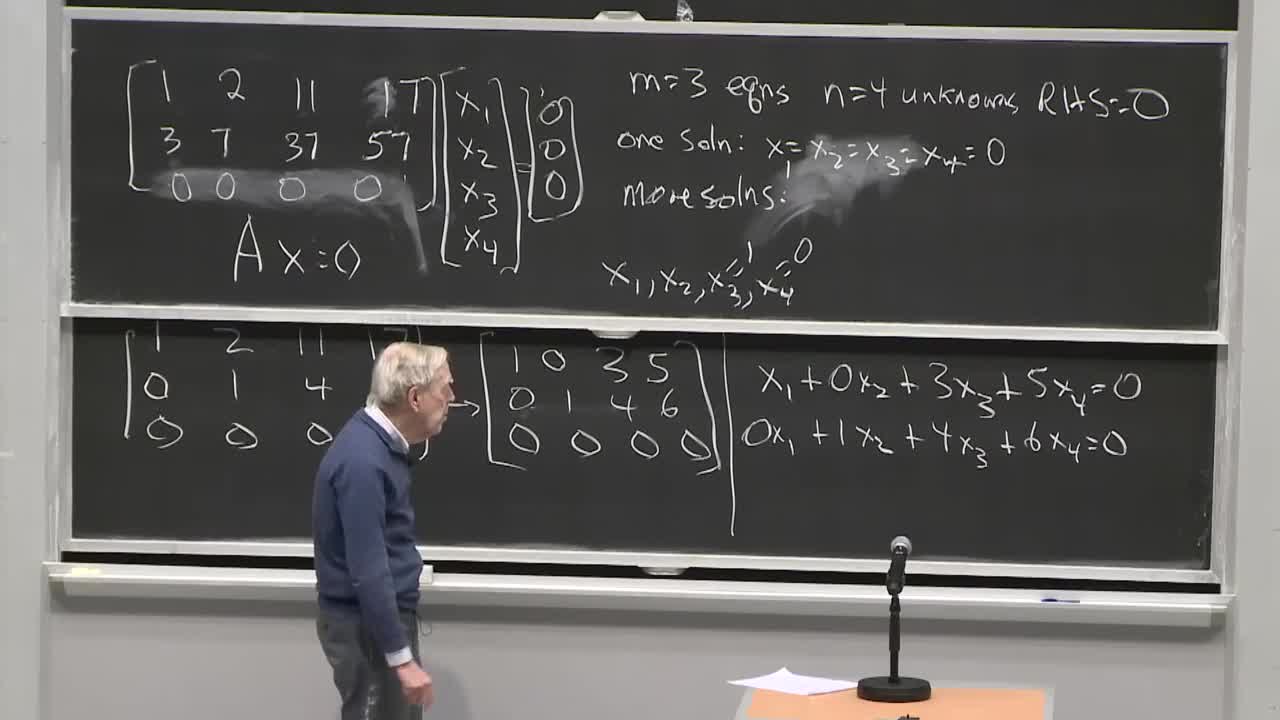 1 2 11 17 x₁ 0
3 7 37 57 x₂ = 0
0 0 0 0 x₃ 0
x₄
Ax=0
m=3 eqns n=4 unknowns RHS=0
one soln: x₁=x₂=x₃=x₄=0
more solns:
1 0
x₁, x₂, x₃, x₄
1 2 11 17
0 1 4
0 0 0
→
1 0 3 5
0 1 4 6
0 0 0 0
x₁+0x₂+3x₃+5x₄=0
0x₁+1x₂+4x₃+6x₄=0